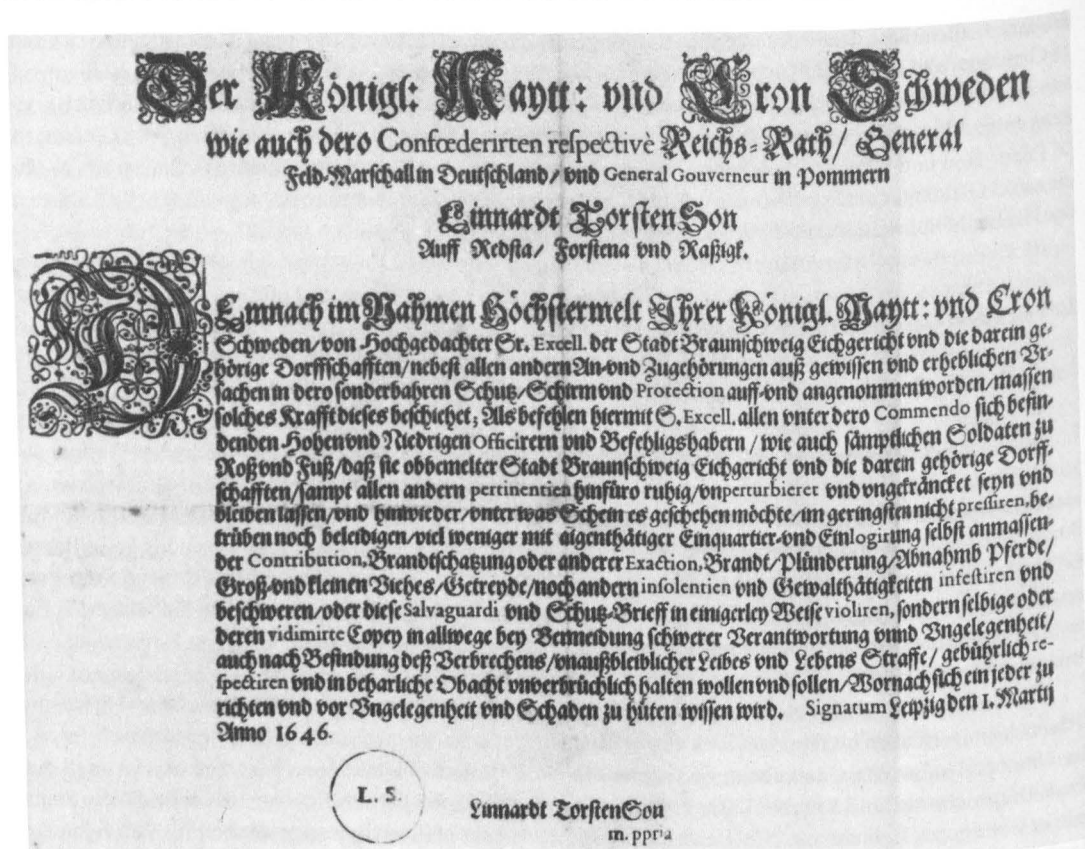 Der Königl: Maytt: vnd Cron Schweden
wie auch dero Confœderirten respectivè Reichs-Rath/ General
Feld-Marschall in Deutschland/ vnd General Gouverneur in Pommern
Linnardt TorstenSon
Auff Redsta/ Forstena vnd Raßigk.
DEmnach im Nahmen Höchstermelt Ihrer Königl. Maytt: vnd Cron
Schweden/ von Hochgedachter Sr. Excell. der Stadt Braunschweig Eichgericht vnd die darein ge-
hörige Dorffschafften/ nebest allen andern An-vnd Zugehörungen auß gewissen vnd erheblichen Vr-
sachen in dero sonderbahren Schutz/ Schirm vnd Protection auff-vnd angenommen worden/ massen
solches Krafft dieses beschiehet; Als befehlen hiermit S. Excell. allen vnter dero Commendo sich befin-
denden Hohen vnd Niedrigen Officirern vnd Befehligshabern / wie auch sämptlichen Soldaten zu
Roß vnd Fuß/ daß sie obbemelter Stadt Braunschweig Eichgericht vnd die darein gehörige Dorff-
schafften/ sampt allen andern pertinentien hinfüro ruhig/ vnperturbieret vnd vngekräncket seyn vnd
bleiben lassen/ vnd hinwieder/ vnter was Schein es geschehen möchte/ im geringsten nicht pressiren, be-
trüben noch beleidigen/ viel weniger mit aigenthätiger Einquartier-vnd Einlogirung selbst anmassen-
der Contribution, Brandtschatzung oder anderer Exaction, Brandt/ Plünderung/ Abnahmb Pferde/
Groß-vnd kleinen Viehes/ Getreyde/ noch andern insolentien vnd Gewalthätigkeiten infestiren vnd
beschweren/ oder diese Salvaguardi vnd Schutz-Brieff in einigerley Weise violiren, sondern selbige oder
deren vidimirte Copey in allwege bey Vermeidung schwerer Verantwortung vnnd Vngelegenheit/
auch nach Befindung deß Verbrechens/ vnaußbleiblicher Leibes vnd Lebens Straffe/ gebührlich re-
spectiren vnd in beharliche Obacht vnverbrüchlich halten wollen vnd sollen/ Wornach sich ein jeder zu
richten vnd vor Vngelegenheit vnd Schaden zu hüten wissen wird. Signatum Leipzig den 1. Martij
Anno 1646.
L. S.
Linnardt TorstenSon
m. ppria